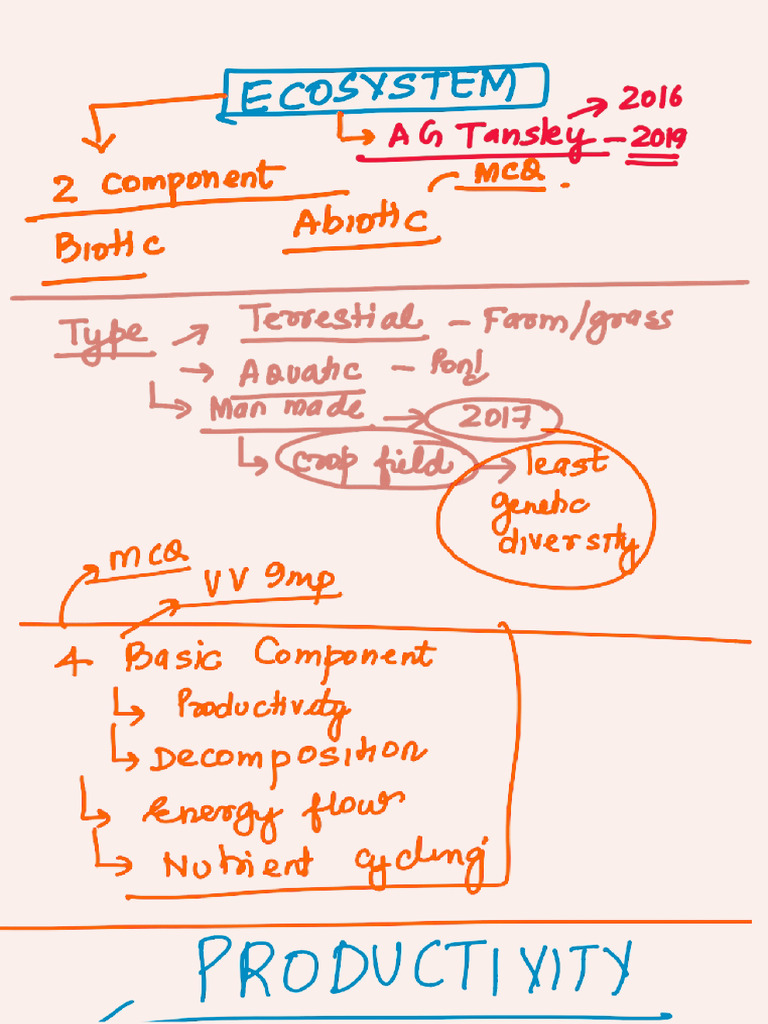 ECOSYSTEM
2016
AG Tansley - 2019
2 Component
MCQ
Biotic Abiotic
Type Terrestial - Farm/grass
Aquatic - Pond
Man made 2017
crop field least
genetic
diversity
MCQ
VV Imp
4 Basic Component
Productivity
Decomposition
Energy flow
Nutrient cycling
PRODUCTIVITY